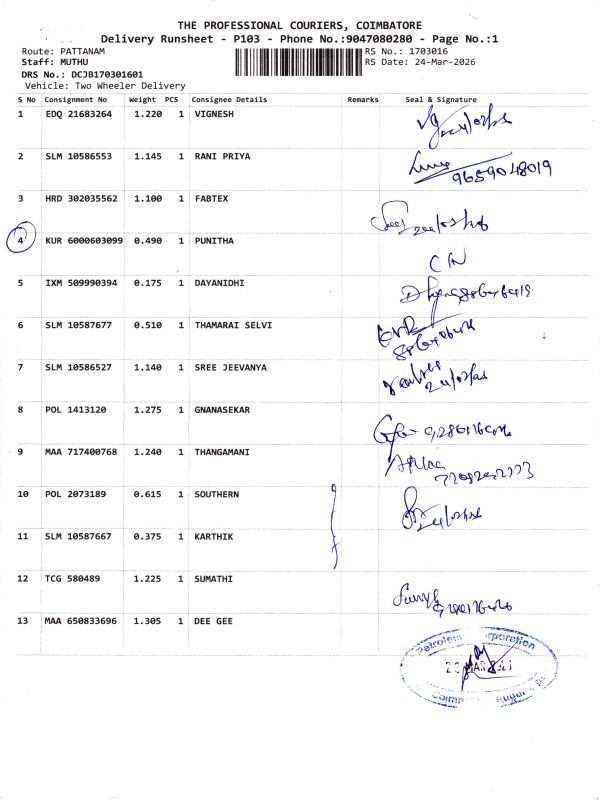 THE PROFESSIONAL COURIERS, COIMBATORE
Delivery Runsheet - P103 - Phone No.:9047080280 - Page No.:1
Route: PATTANAM RS No.: 1703016
Staff: MUTHU RS Date: 24-Mar-2026
DRS No.: DCJB170301601
Vehicle: Two Wheeler Delivery
S No Consignment No Weight PCS Consignee Details Remarks Seal & Signature
1 EDQ 21683264 1.220 1 VIGNESH
2 SLM 10586553 1.145 1 RANI PRIYA
9659048019
3 HRD 302035562 1.100 1 FABTEX
4 KUR 6000603099 0.490 1 PUNITHA
5 IXM 509990394 0.175 1 DAYANIDHI
6 SLM 10587677 0.510 1 THAMARAI SELVI
7 SLM 10586527 1.140 1 SREE JEEVANYA
8 POL 1413120 1.275 1 GNANASEKAR
9 MAA 717400768 1.240 1 THANGAMANI
10 POL 2073189 0.615 1 SOUTHERN
11 SLM 10587667 0.375 1 KARTHIK
12 TCG 580489 1.225 1 SUMATHI
13 MAA 650833696 1.305 1 DEE GEE